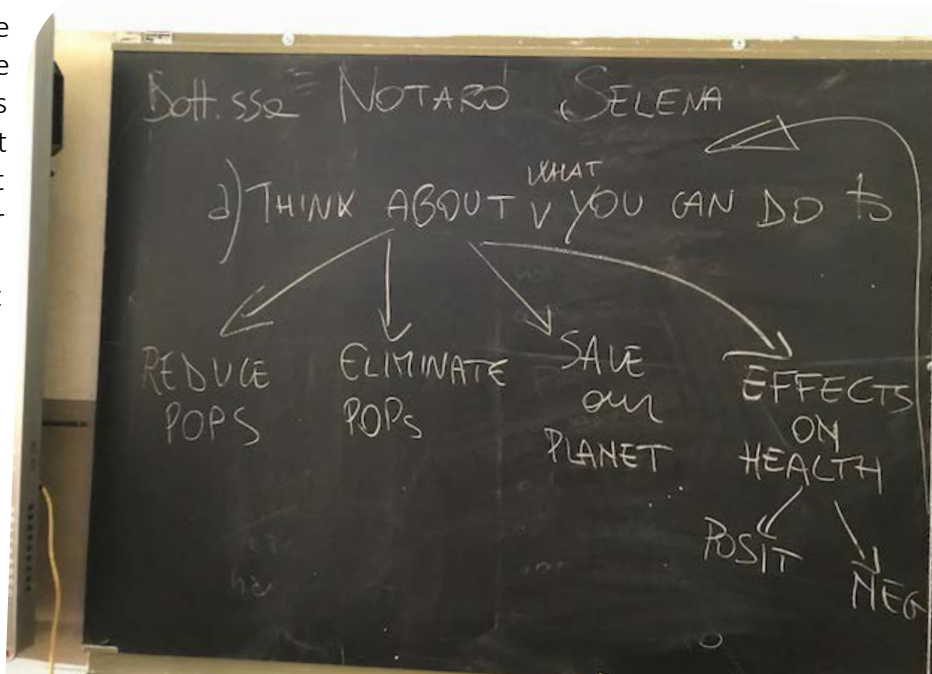 Dott.ssa NOTARO SELENA
a) THINK ABOUT V YOU CAN DO to
WHAT
REDUCE
POPS
ELIMINATE
POPs
SAVE
our
PLANET
EFFECTS
ON
HEALTH
POSIT
NEG